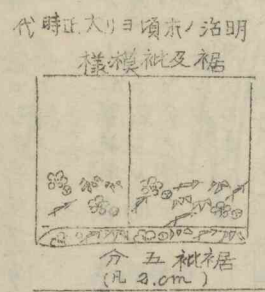 明治ノ末頃ヨリ大正時代
裾及袘模様
裾袘五分
(凡2.cm)